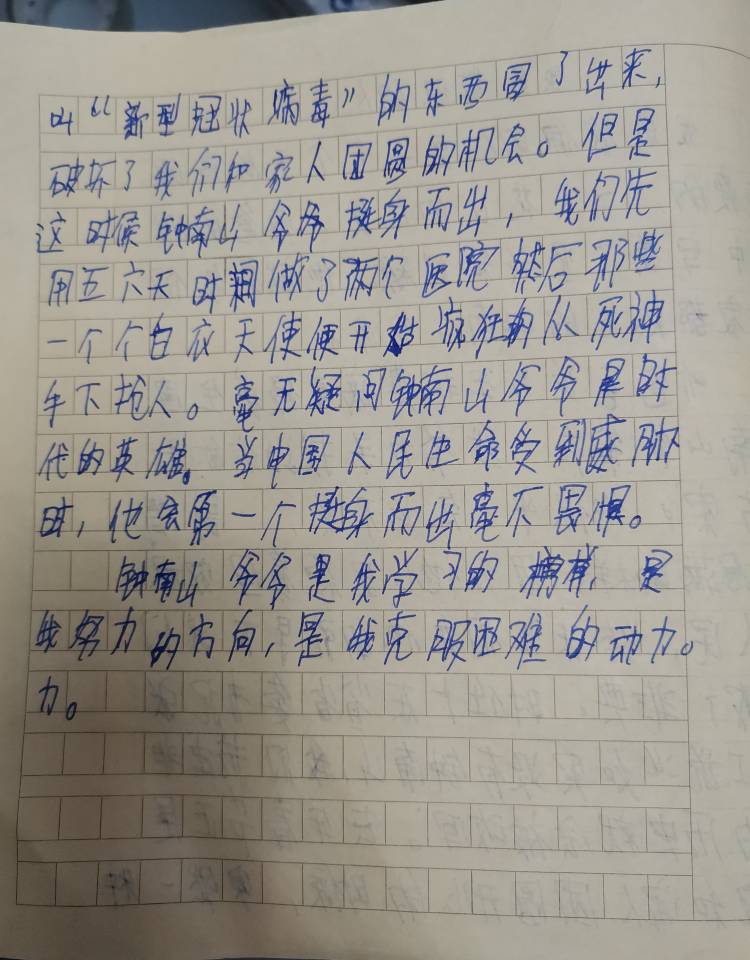 叫“新型冠状病毒”的东西冒了出来，
破坏了我们和家人团圆的机会。但是
这时候钟南山爷爷挺身而出，我们先
用五六天时间做了两个医院然后那些
一个个白衣天使便开始疯狂的从死神
手下抢人。毫无疑问钟南山爷爷是时
代的英雄。当中国人民生命受到威胁
时，他会第一个挺身而出毫不畏惧。
钟南山爷爷是我学习的榜样，是
我努力的方向，是我克服困难的动力。
力。